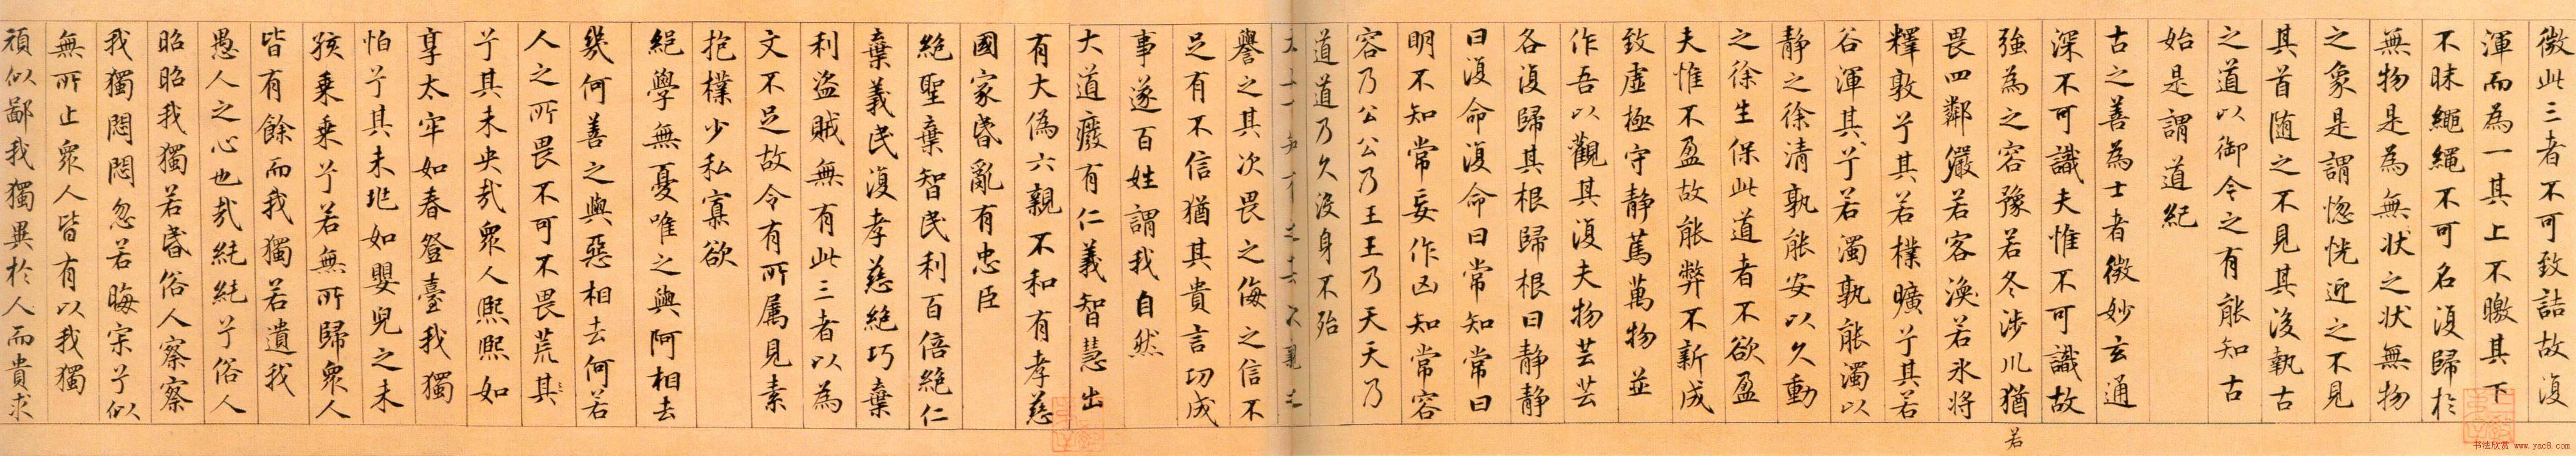 微此三者不可致詰故復
渾而為一其上不皦其下
不昧繩繩不可名復歸於
無物是為無狀之狀無物
之象是謂惚恍迎之不見
其首隨之不見其後執古
之道以御今之有能知古
始是謂道紀
古之善為士者微妙玄通
深不可識夫惟不可識故
強為之容豫若冬涉川猶
畏四鄰儼若客渙若氷將
釋敦兮其若樸曠兮其若
谷渾其兮若濁孰能濁以
静之徐清孰能安以久動
之徐生保此道者不欲盈
夫惟不盈故能弊不新成
致虛極守静篤萬物並
作吾以觀其復夫物芸芸
各復歸其根歸根曰静静
曰復命復命曰常知常曰
明不知常妄作凶知常容
容乃公公乃王王乃天天乃
道道乃久没身不殆
譽之其次畏之侮之信不
足有不信猶其貴言功成
事遂百姓謂我自然
大道廢有仁義智慧出
有大偽六親不和有孝慈
國家昏亂有忠臣
絶聖棄智民利百倍絶仁
棄義民復孝慈絶巧棄
利盜賊無有此三者以為
文不足故令有所屬見素
抱樸少私寡欲
絕學無憂唯之與阿相去
幾何善之與惡相去何若
人之所畏不可不畏荒其
兮其未央哉衆人熙熙如
享太牢如春登臺我獨
怕兮其未兆如嬰兒之未
孩乗乗兮若無所歸衆人
皆有餘而我獨若遺我
愚人之心也哉純純兮俗人
昭昭我獨若昏俗人察察
我獨悶悶忽若晦宋兮似
無所止衆人皆有以我獨
頑似鄙我獨異於人而貴求
若
书法欣赏 www.yac8.com